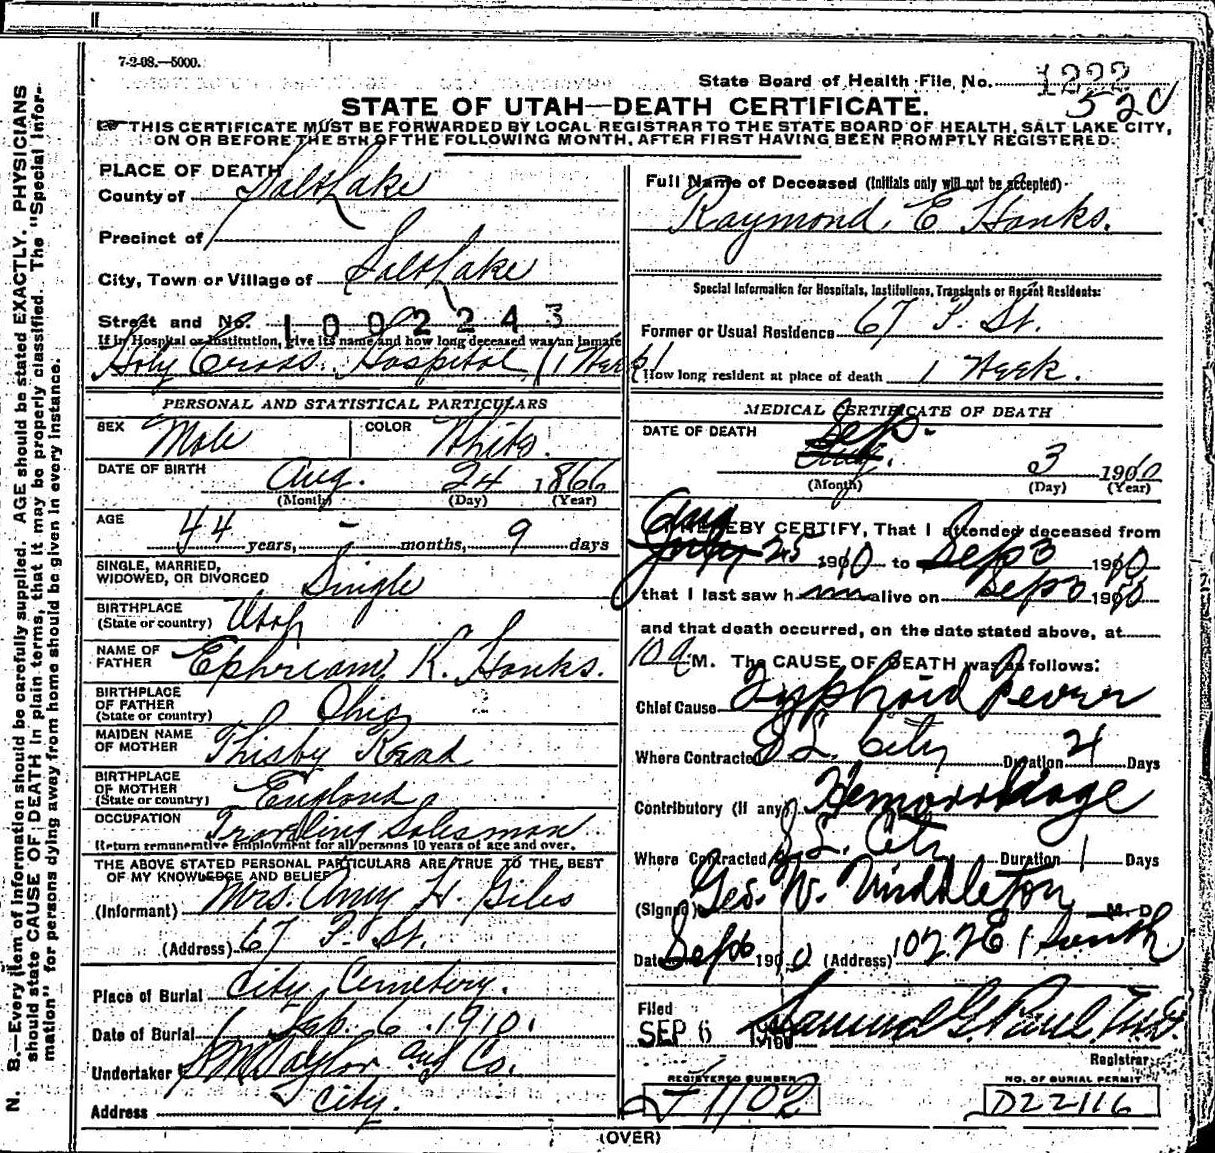 7-2-08.—5000.
State Board of Health File No. 1222
520
STATE OF UTAH—DEATH CERTIFICATE.
THIS CERTIFICATE MUST BE FORWARDED BY LOCAL REGISTRAR TO THE STATE BOARD OF HEALTH, SALT LAKE CITY,
ON OR BEFORE THE 5TH OF THE FOLLOWING MONTH, AFTER FIRST HAVING BEEN PROMPTLY REGISTERED.
PLACE OF DEATH
County of Salt Lake
Precinct of
City, Town or Village of Salt Lake
Street and No. 1002243
If in Hospital or Institution, give its name and how long deceased was an inmate
Holy Cross Hospital (1 Week)
PERSONAL AND STATISTICAL PARTICULARS
SEX Male COLOR White
DATE OF BIRTH Aug. 24 1866
(Month) (Day) (Year)
AGE 44 years, - months, 9 days
SINGLE, MARRIED,
WIDOWED, OR DIVORCED Single
BIRTHPLACE
(State or country) Utah
NAME OF
FATHER Ephriam K. Hanks.
BIRTHPLACE
OF FATHER
(State or country) Ohio
MAIDEN NAME
OF MOTHER Thisby Read
BIRTHPLACE
OF MOTHER
(State or country) England
OCCUPATION Traveling Salesman
(Return remunerative employment for all persons 10 years of age and over.
THE ABOVE STATED PERSONAL PARTICULARS ARE TRUE TO THE BEST
OF MY KNOWLEDGE AND BELIEF
(Informant) Mrs. Amy H. Giles
(Address) 67 P. St.
Place of Burial City Cemetery.
Date of Burial Sep. 6. 1910.
Undertaker S M Taylor and Co.
Address City.
Full Name of Deceased (Initials only will not be accepted)
Raymond. E Hanks.
Special Information for Hospitals, Institutions, Transients or Recent Residents:
Former or Usual Residence 67 P. St.
How long resident at place of death 1 Week.
MEDICAL CERTIFICATE OF DEATH
DATE OF DEATH Sep.
Aug. 3 1910
(Month) (Day) (Year)
Aug
I HEREBY CERTIFY, That I attended deceased from
July 25 1910 to Sep 3 1910
that I last saw him alive on Sep 3 1910
and that death occurred, on the date stated above, at
10 a M. The CAUSE OF DEATH was as follows:
Chief Cause Typhoid Fever
Where Contracted S L. City Duration 21 Days
Contributory (if any) Hemorrhage
Where Contracted S. L. City Duration 1 Days
(Signed) Geo. W. Middleton M. D.
Date Sep 6 1910 (Address) 1027 E 1 South
Filed
SEP 6 1910 Samuel G. Paul, M.D.
Registrar
REGISTERED NUMBER
F1102
NO. OF BURIAL PERMIT
D22116
(OVER)
N. B.—Every item of information should be carefully supplied. AGE should be stated EXACTLY. PHYSICIANS
should state CAUSE OF DEATH in plain terms, that it may be properly classified. The "Special Infor-
mation" for persons dying away from home should be given in every instance.